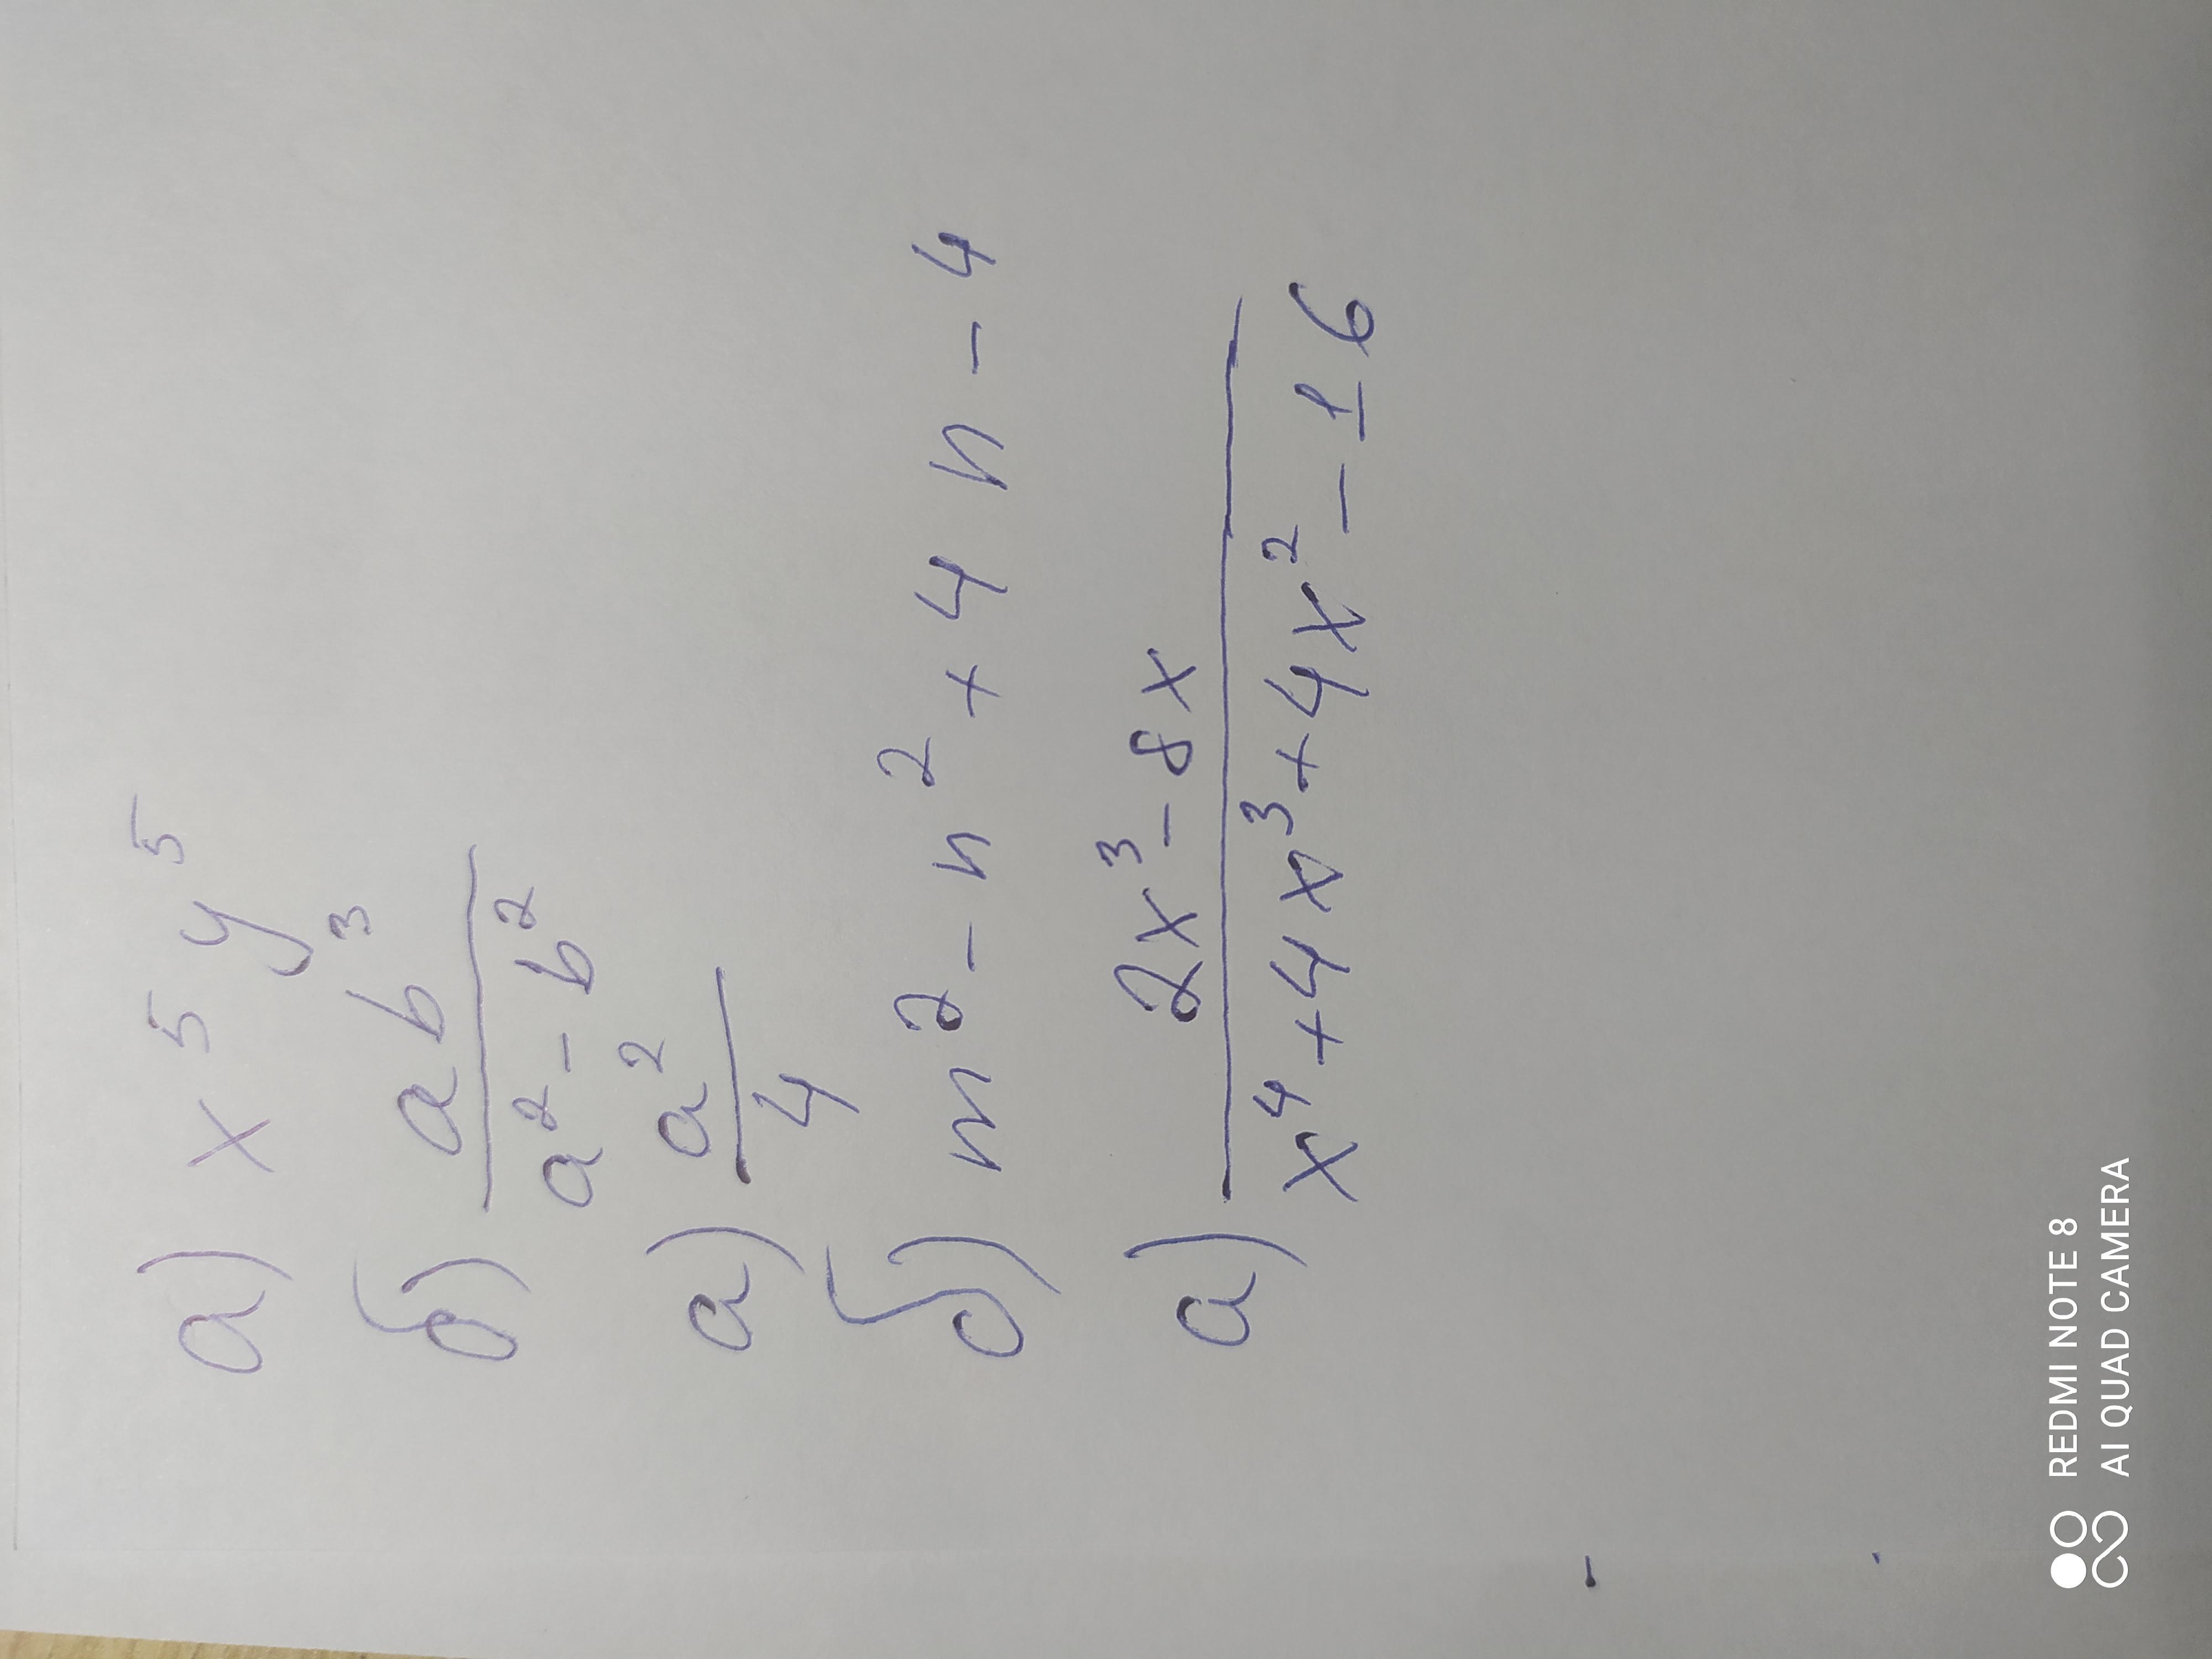 а) x⁵ y⁵
б) ab³
a² - b²
а) a²
4
б) m² - n² + 4n - 4
а) 2x³ - 8x
x⁴ + 4x³ + 4x² - 16
REDMI NOTE 8
AI QUAD CAMERA